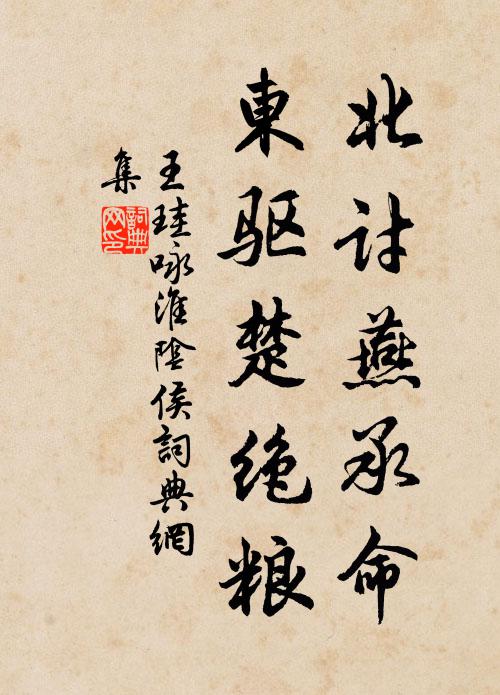 北讨燕承命
東驱楚绝粮
王珪咏淮陰侯詞典網
集
詞典
网印